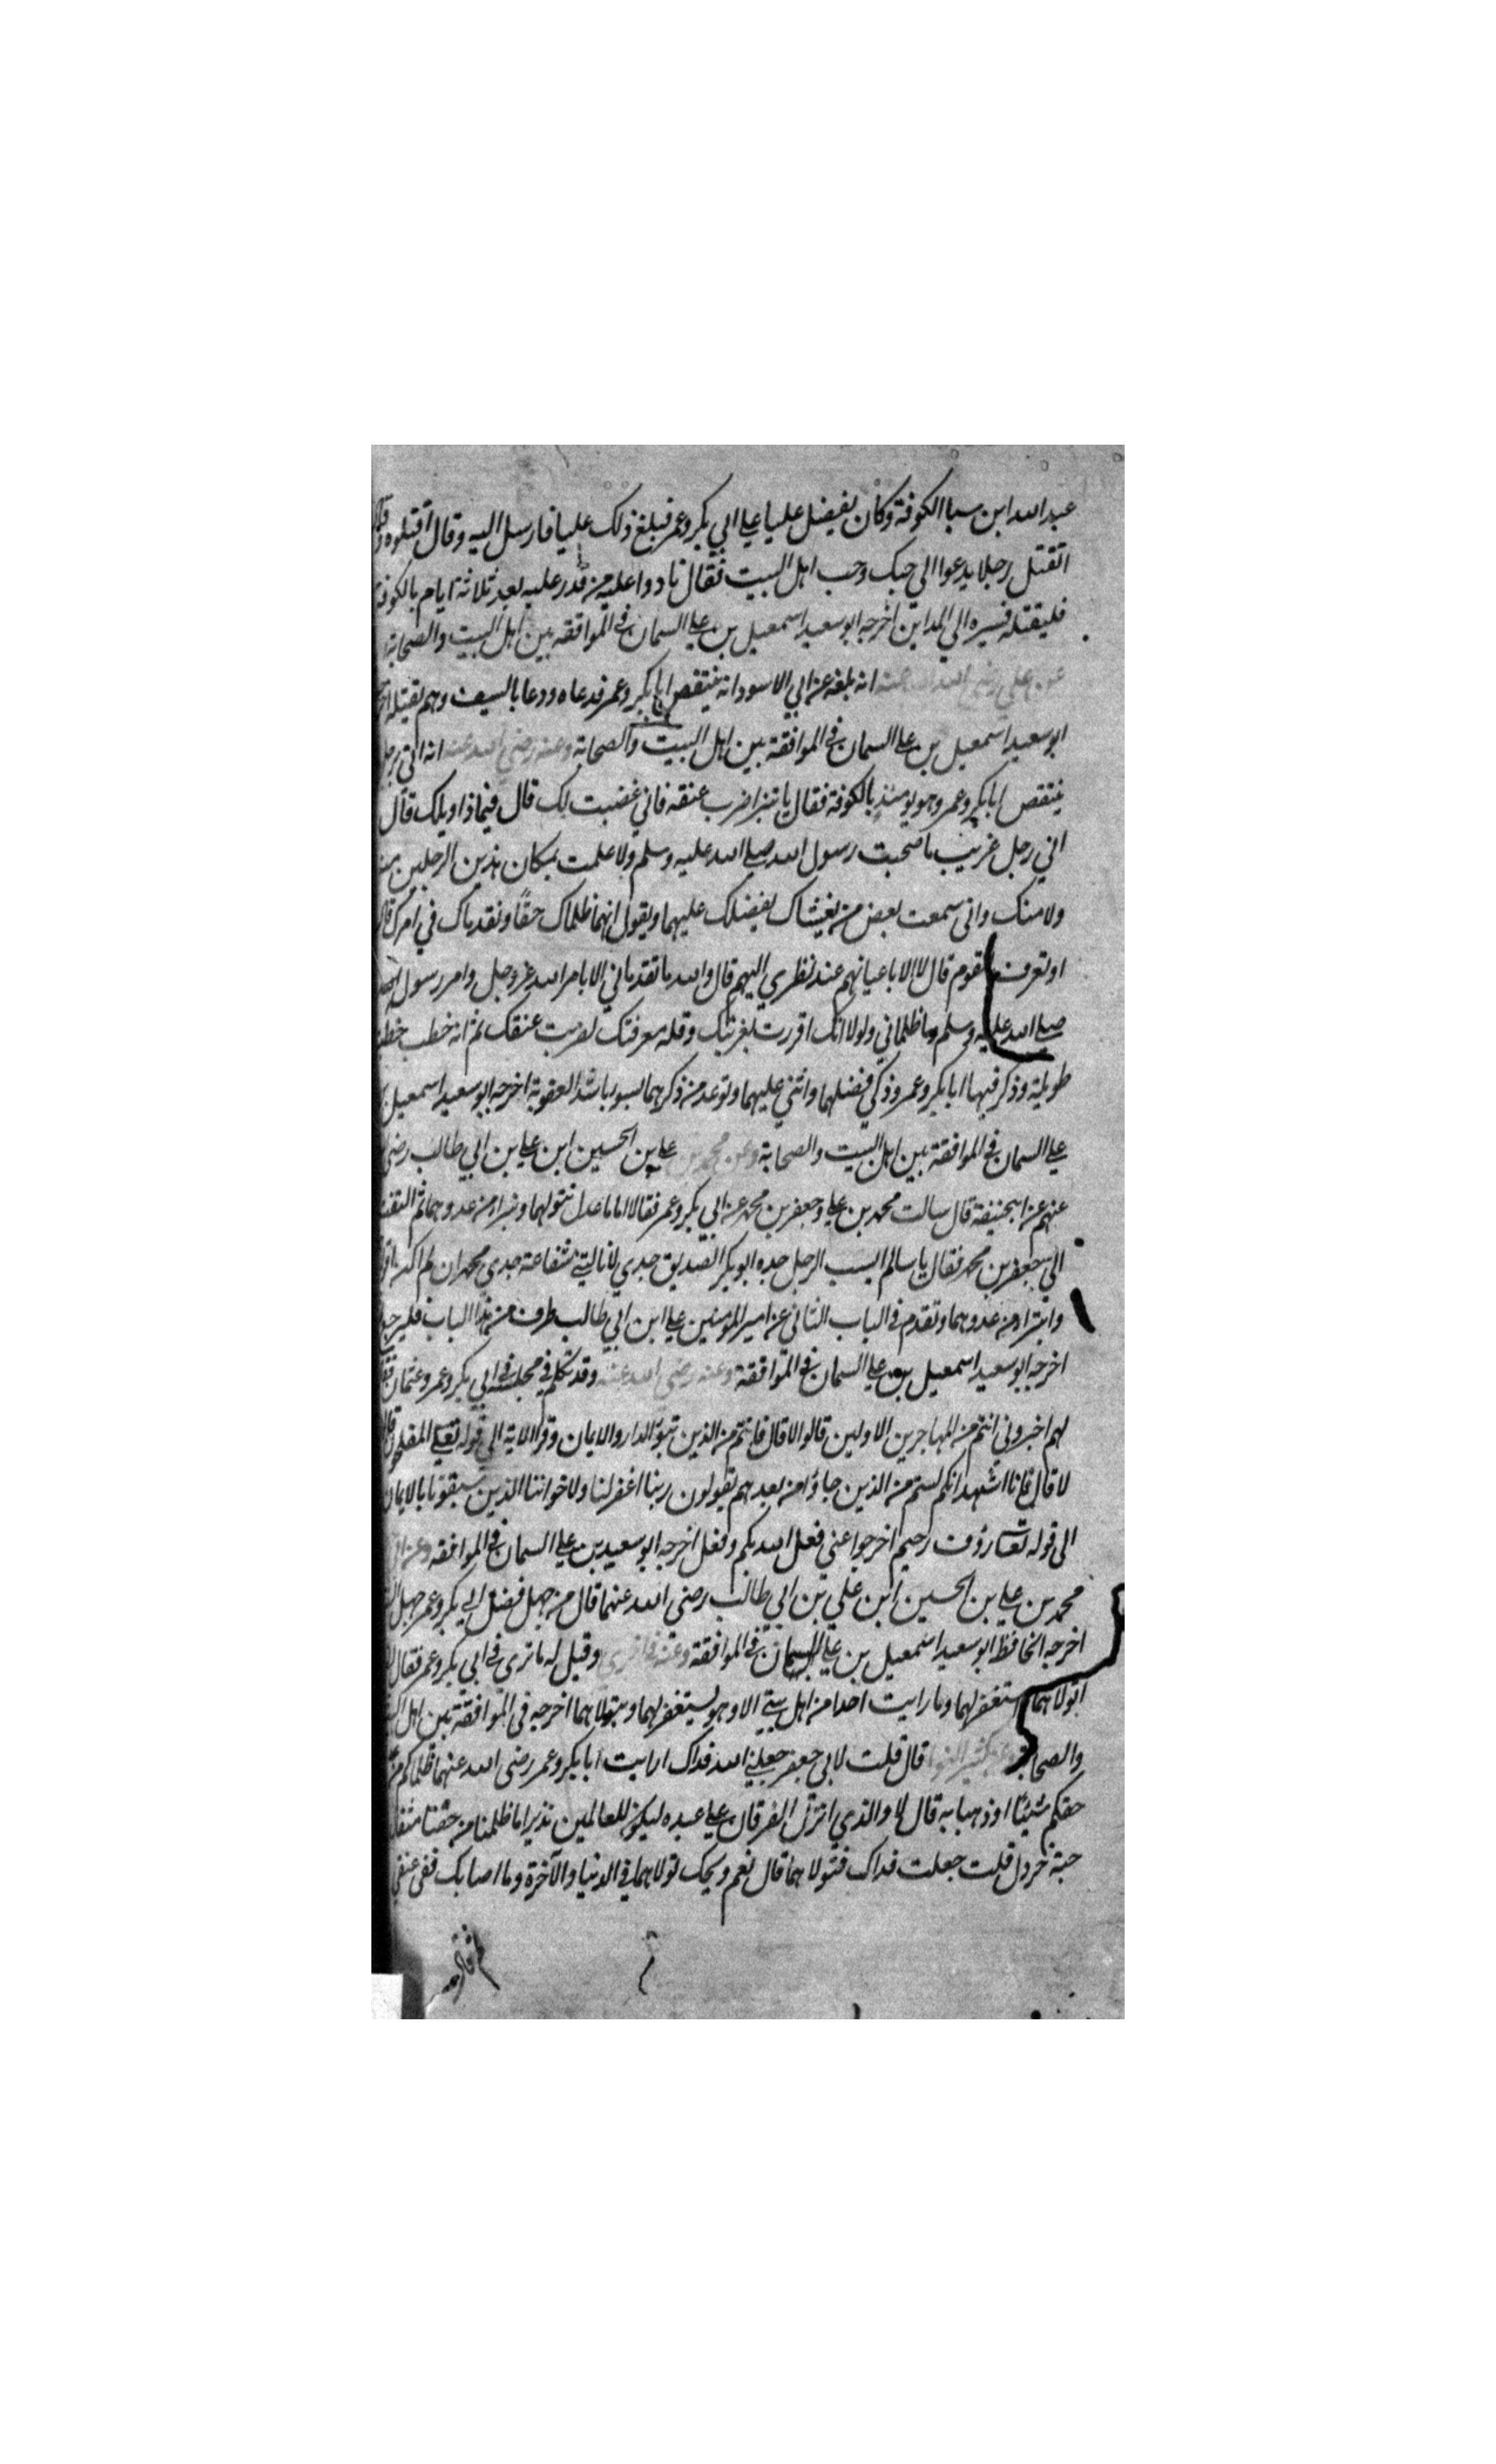 عبد الله ابن سبا الكوفة وكان يفضل عليا علي ابي بكر وعمر فبلغ ذلك عليا فارسل اليه وقال اقتلوه
اتقتل رجلا يدعوا الي حبك وحب اهل البيت فقال نادوا عليه من قدر عليه بعد ثلاثة ايام بالكوفة
فليقتله فسيره الي المداين اخرجه ابو سعيد اسمعيل بن علي السمان في الموافقه بين اهل البيت والصحابة
عن علي رضي الله عنه انه بلغه عن ابي الاسود انه ينتقص ابابكر وعمر فدعاه ودعا بالسيف وهم بقتله
ابو سعيد اسمعيل بن علي السمان في الموافقة بين اهل البيت والصحابة وعنه رضي الله عنه انه اتي برجل
ينتقص ابابكر وعمر وهو يومئذ بالكوفة فقال يا قنبر اضرب عنقه فاني غضبت لك قال فيماذا ويلك قال
اني رجل غريب ما صحبت رسول الله صلي الله عليه وسلم ولا علمت بمكان هذين الرجلين منه
ولا منك واني سمعت بعض من يغشاك يفضلك عليهما ويقول انهما ظلماك حقا وتقدماك في امرك قال
او تعرف القوم قال لا الا باعيانهم عند نظري اليهم قال والله ما تقدماني الا بامر الله عز وجل وامر رسول الله
صلي الله عليه وسلم وما ظلماني ولولا انك اقررت بغربتك وقلة معرفتك لضربت عنقك ثم انه خطب خطبة
طويلة وذكر فيها ابابكر وعمر وذكر فضلهما واثني عليهما وتوعد من ذكرهما بسوء باشد العقوبة اخرجه ابو سعيد اسمعيل
علي السمان في الموافقة بين اهل البيت والصحابة وعن محمد بن علي بن الحسين ابن علي بن ابي طالب رضي
عنهم عن ابيحنيفة قال سالت محمد بن علي وجعفر بن محمد عن ابي بكر وعمر فقالا اماما عدل نتولهما ونبرا من عدوهما ثم التفت
الي جعفر بن محمد فقال يا سالم ايسب الرجل جده ابو بكر الصديق جدي لا نالتني شفاعة جدي محمد ان لم اكن
وابترا من عدوهما وتقدم في الباب الثاني عن امير المومنين علي ابن ابي طالب طرف من هذا الباب
اخرجه ابو سعيد اسمعيل بن علي السمان في الموافقة وعنه رضي الله عنه وقد تكلم في مجلسه في ابي بكر وعمر وعثمان
لهم اخبروني انتم من المهاجرين الاولين قالوا لا قال فانتم من الذين تبوؤ الدار والايمان وقرا الاية الي قوله تعالي المفلحون
لا قال فانا اشهد انكم لستم من الذين جاؤا من بعدهم يقولون ربنا اغفر لنا ولاخواننا الذين سبقونا بالايمان
الى قوله تعالى رؤف رحيم اخرجوا عني فعل الله بكم وفعل اخرجه ابو سعيد بن علي السمان في الموافقه
محمد بن علي بن الحسين ابن علي بن ابي طالب رضي الله عنهما قال من جهل فضل ابي بكر وعمر جهل
اخرجه الحافظ ابو سعيد اسمعيل بن علي السمان في الموافقة وعنه في اخري وقيل له ما تري في ابي بكر وعمر فقال
اتولاهما واستغفر لهما وما رايت احدا من اهل بيتي الا وهو يستغفر لهما ويتولاهما اخرجه في الموافقة بين اهل
والصحابة عن كثير النوا قال قلت لابي جعفر جعلني الله فداك ارايت ابابكر وعمر رضي الله عنهما ظلماكم من
حقكم شيئا او ذهبا به قال لا والذي انزل الفرقان علي عبده ليكون للعالمين نذيرا ما ظلمنا من حقنا مثقال
حبة خردل قلت جعلت فداك فتولاهما قال نعم ويحك تولاهما في الدنيا والآخرة وما اصابك ففي عنقي